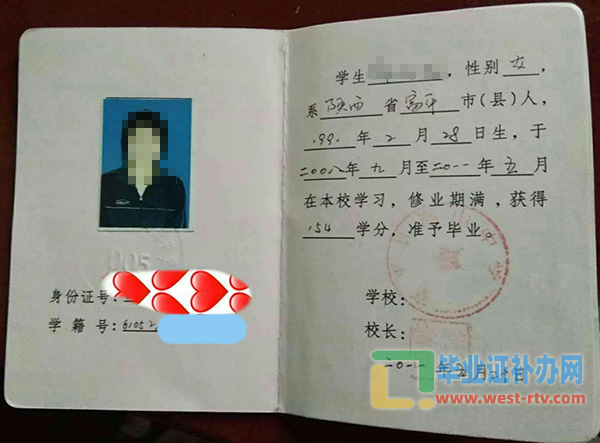 005
身份证号:
学 籍 号:61052
学生 ,性别 女 ,
系 陕西 省 富平 市(县)人,
1991 年 2 月 28 日生,于
二00八年 九 月至二0一一年 五 月
在本校学习,修业期满,获得
154 学分,准予毕业。
学校:
校长:
二0一一 年 五 月 日
毕业证补办网
www.west-rtv.com